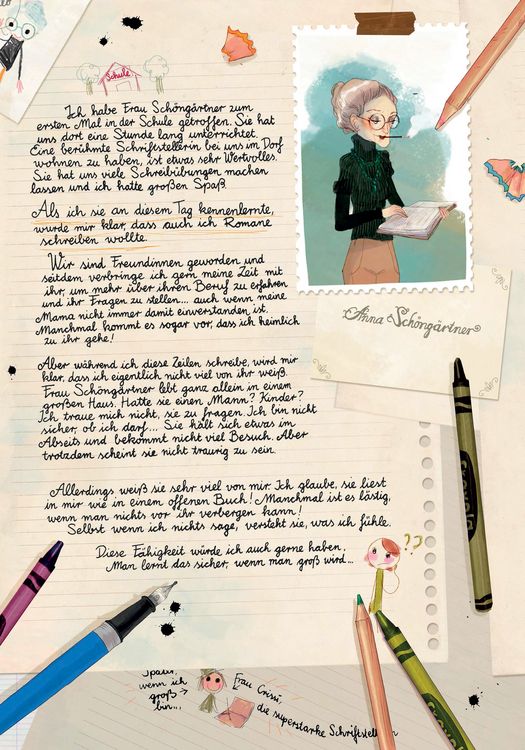 Schule
Ich habe Frau Schöngärtner zum
ersten Mal in der Schule getroffen. Sie hat
uns dort eine Stunde lang unterrichtet.
Eine berühmte Schriftstellerin bei uns im Dorf
wohnen zu haben, ist etwas sehr Wertvolles.
Sie hat uns viele Schreibübungen machen
lassen und ich hatte großen Spaß.
Als ich sie an diesem Tag kennenlernte,
wurde mir klar, dass auch ich Romane
schreiben wollte.
Wir sind Freundinnen geworden und
seitdem verbringe ich gern meine Zeit mit
ihr, um mehr über ihren Beruf zu erfahren
und ihr Fragen zu stellen... auch wenn meine
Mama nicht immer damit einverstanden ist.
Manchmal kommt es sogar vor, dass ich heimlich
zu ihr gehe!
Anna Schöngärtner
Aber während ich diese Zeilen schreibe, wird mir
klar, dass ich eigentlich nicht viel von ihr weiß.
Frau Schöngärtner lebt ganz allein in einem
großen Haus. Hatte sie einen Mann? Kinder?
Ich traue mich nicht, sie zu fragen. Ich bin nicht
sicher, ob ich darf... Sie hält sich etwas im
Abseits und bekommt nicht viel Besuch. Aber
trotzdem scheint sie nicht traurig zu sein.
Allerdings weiß sie sehr viel von mir. Ich glaube, sie liest
in mir wie in einem offenen Buch! Manchmal ist es lästig,
wenn man nichts vor ihr verbergen kann!
Selbst wenn ich nichts sage, versteht sie, was ich fühle.
Diese Fähigkeit würde ich auch gerne haben.
Man lernt das sicher, wenn man groß wird...
??
Später,
wenn ich
groß
bin...
Frau Crissi,
die superstarke